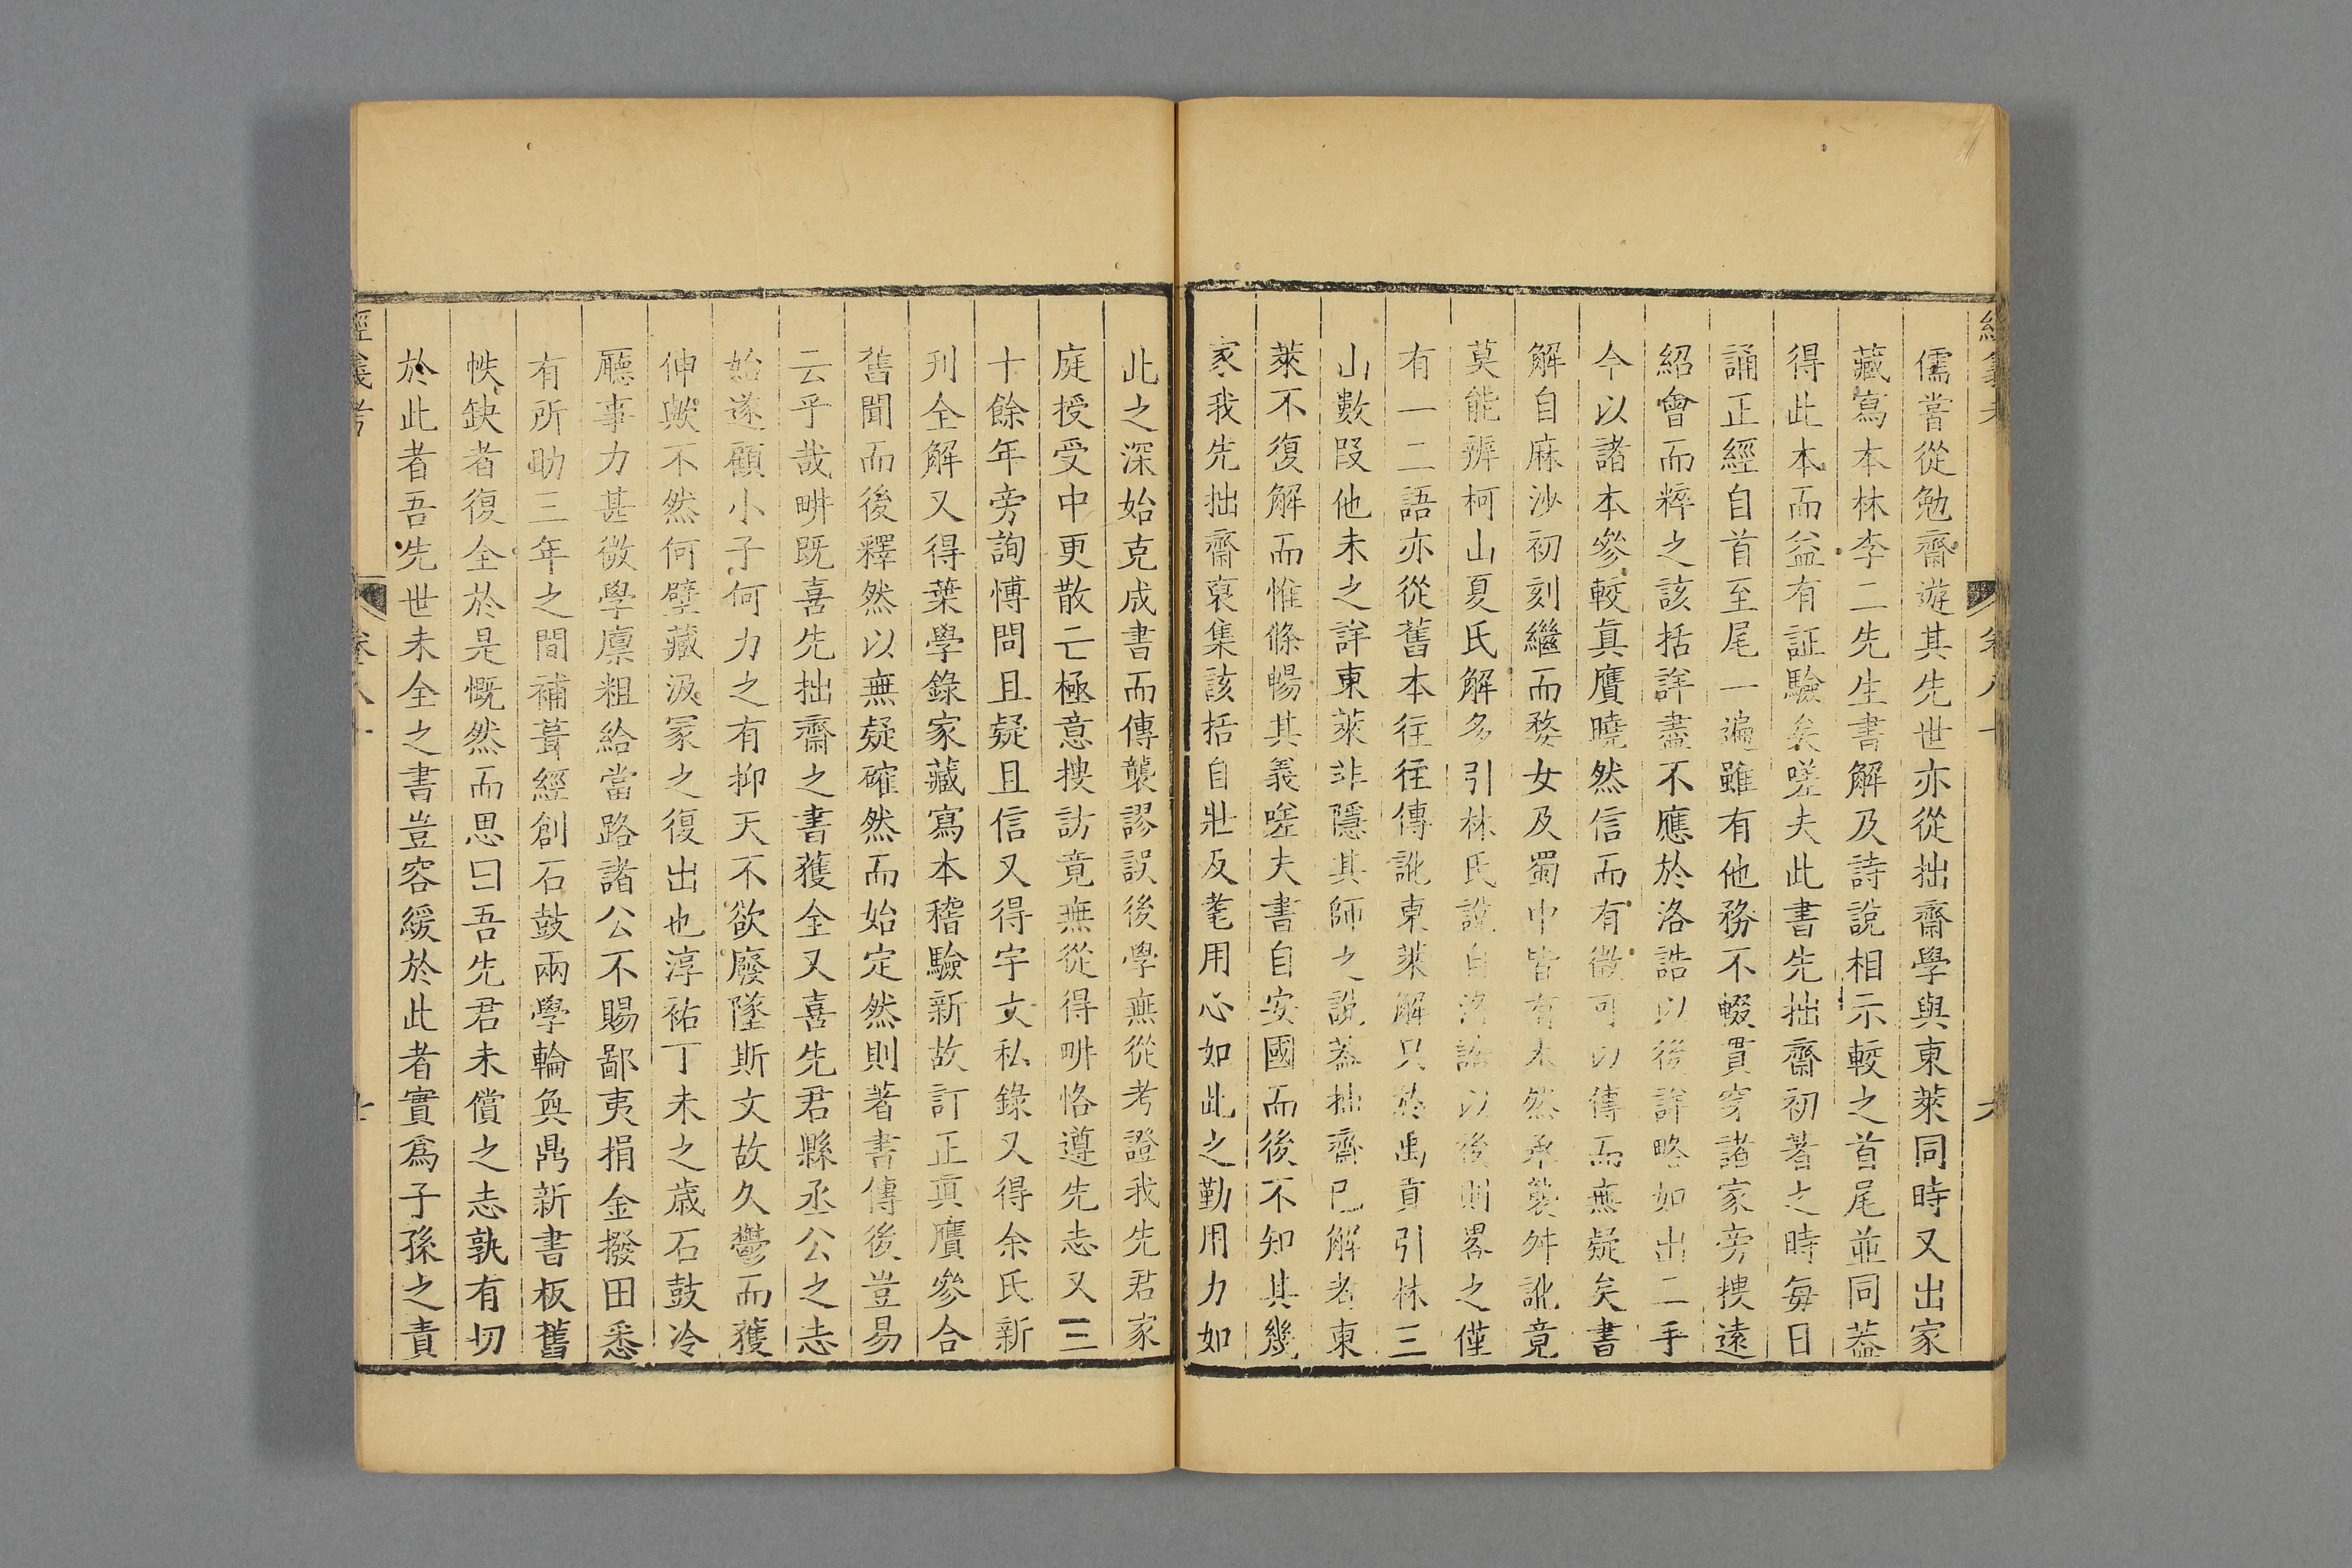 儒嘗從勉齋遊其先世亦從拙齋學與東萊同時又出家
藏寫本林李二先生書解及詩說相示較之首尾並同葢
得此本而益有証驗矣嗟夫此書先拙齋初著之時每日
誦正經自首至尾一遍雖有他務不輟貫穿諸家旁搜遠
紹會而粹之該括詳盡不應於洛誥以後詳略如出二手
今以諸本參較真贗曉然信而有徵可以傳而無疑矣書
解自麻沙初刻繼而婺女及蜀中皆有本然承襲舛訛竟
莫能辨柯山夏氏解多引林氏說自洛誥以後則畧之僅
有一二語亦從舊本往往傳訛東萊解只於禹貢引林三
山數段他未之詳東萊非隱其師之說葢拙齋已解者東
萊不復解而惟條暢其義嗟夫書自安國而後不知其幾
家我先拙齋裒集該括自壯及耄用心如此之勤用力如
此之深始克成書而傳襲謬誤後學無從考證我先君家
庭授受中更散亡極意搜訪竟無從得畊恪遵先志又三
十餘年旁詢博問且疑且信又得宇文私錄又得余氏新
刋全解又得葉學錄家藏寫本稽驗新故訂正真贗參合
舊聞而後釋然以無疑確然而始定然則著書傳後豈易
云乎哉畊既喜先拙齋之書獲全又喜先君縣丞公之志
始遂顧小子何力之有抑天不欲廢墜斯文故久鬱而獲
伸歟不然何壁藏汲冡之復出也淳祐丁未之歲石鼓冷
廳事力甚微學廩粗給當路諸公不賜鄙夷捐金撥田悉
有所助三年之間補葺經創石鼓兩學輪奐鼎新書板舊
帙缺者復全於是慨然而思曰吾先君未償之志孰有切
於此者吾先世未全之書豈容緩於此者實爲子孫之責